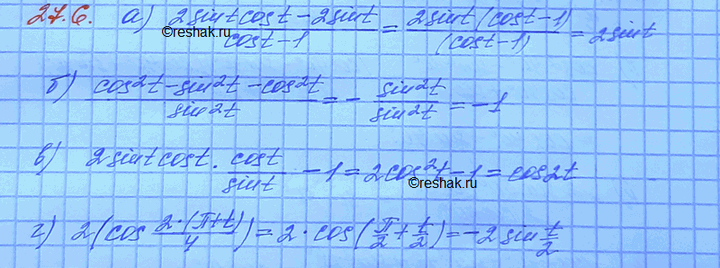 27.6. а) (2sint cost - 2sint)/(cost-1) = (2sint(cost-1))/((cost-1)) = 2sint
©reshak.ru
б) (cos²t - sin²t - cos²t)/(sin²t) = - (sin²t)/(sin²t) = -1
в) 2sint cost · (cost)/(sint) - 1 = 2cos²t - 1 = cos2t
©reshak.ru
г) 2(cos (2·(π+t))/4) = 2·cos(π/2 + t/2) = -2 sin t/2